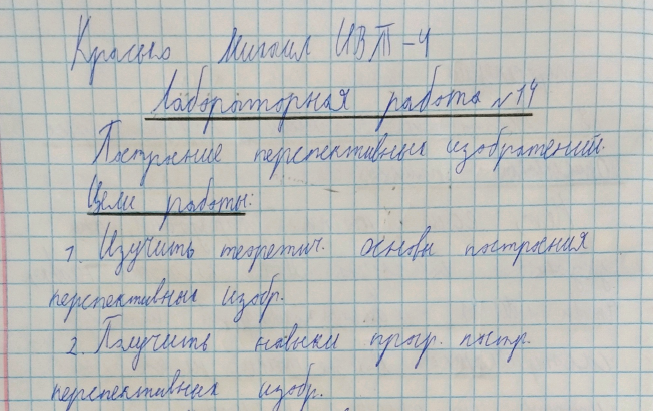 Михаил ИВТ-4
Лабораторная работа №14
Построение перспективных изображений.
Цели работы:
1. Изучить теоретич. основы построения
перспективных изобр.
2. Получить навыки прогр. постр.
перспективных изобр.